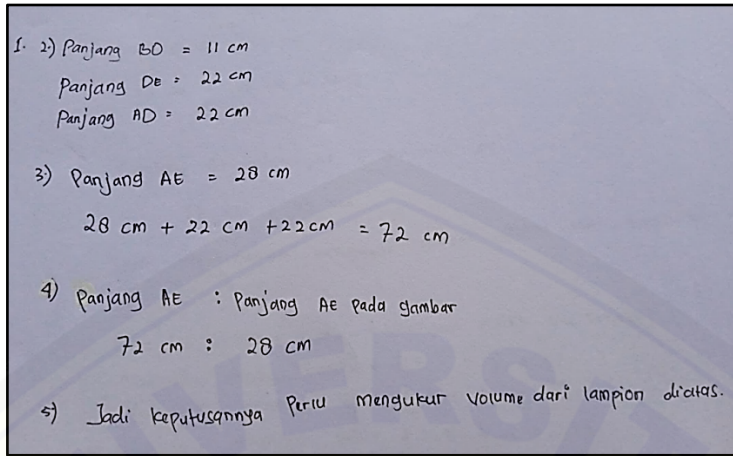 1. 2.) Panjang BO = 11 cm
Panjang DE = 22 cm
Panjang AD = 22 cm
3.) Panjang AE = 28 cm
28 cm + 22 cm + 22 cm = 72 cm
4) Panjang AE : Panjang AE pada gambar
72 cm : 28 cm
5) Jadi keputusannya Perlu mengukur volume dari lampion diatas.